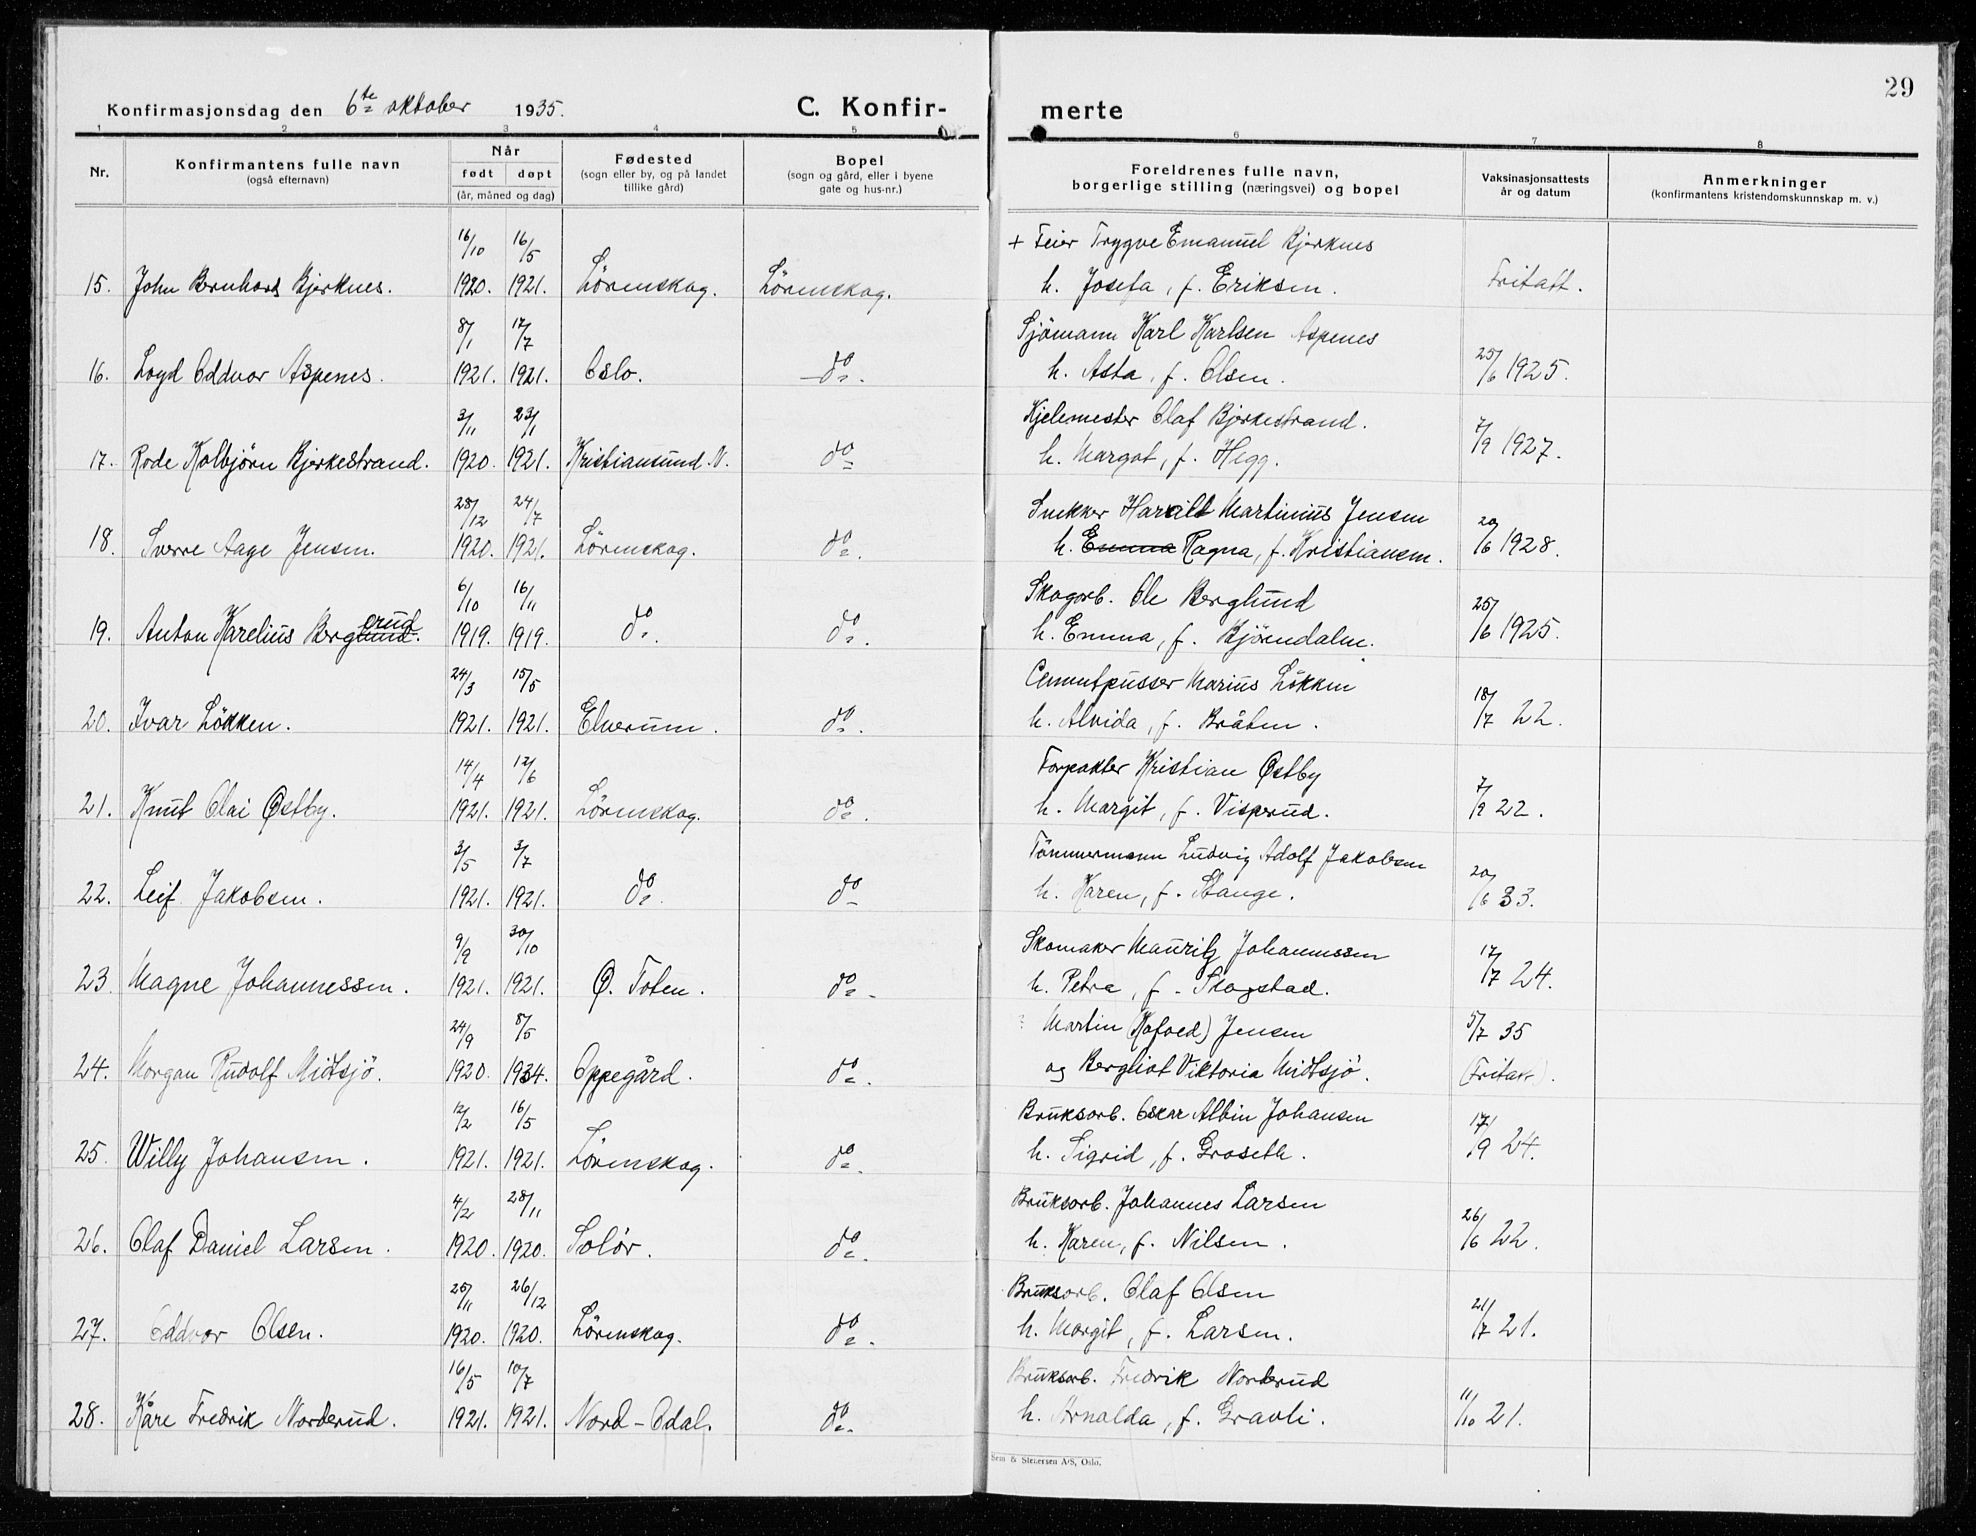 29
Konfirmasjonsdag den 6te oktober 1935.
C. Konfirmerte
1 2 3 4 5 6 7 8
Nr.
Konfirmantens fulle navn
(også efternavn)
Når
født døpt
(år, måned og dag)
Fødested
(sogn eller by, og på landet
tillike gård)
Bopel
(sogn og gård, eller i byene
gate og hus-nr.)
Foreldrenes fulle navn,
borgerlige stilling (næringsvei) og bopel
Vaksinasjonsattests
år og datum
Anmerkninger
(konfirmantens kristendomskunnskap m. v.)
16/10 16/5 + Feier Trygve Emanuel Bjerknes
15. John Bernhard Bjerknes. 1920. 1921. Lörenskog. Lörenskog. h. Josefa, f. Eriksen. Fritatt.
8/1 17/7 Sjömann Karl Karlsen Aspenes
16. Loyd Oddvar Aspenes. 1921. 1921. Oslo. do. h. Asta, f. Olsen. 25/6 1925.
3/11 23/1 Kjelemester Olaf Bjerkestrand.
17. Rode Kolbjörn Bjerkestrand. 1920. 1921. Kristiansund. N. do h. Margot, f. Hegg. 7/9 1927.
28/12 24/7 Snekker Harald Martinius Jensen
18. Sverre Aage Jensen. 1920. 1921. Lörenskog. do. h. Emma Ragna, f. Kristiansen. 20/6 1928.
6/10 16/11 Skogarb. Ole Berglund
19. Anton Karelius Berglund. erud 1919. 1919. do. do. h. Emma, f. Björndalen. 25/6 1925.
24/3 15/5 Cementpusser Marius Lökken
20. Ivar Lökken. 1921. 1921. Elverum. do. h. Alvida, f. Bråten. 18/7 22.
14/4 12/6 Forpakter Kristian Østby
21. Knut Olai Østby. 1921. 1921. Lörenskog. do. h. Margit, f. Visperud. 7/9 22.
3/5 3/7 Tömmermann Ludvig Adolf Jakobsen
22. Leif Jakobsen. 1921. 1921. do. do h. Karen, f. Stange. 20/6 33.
9/9 30/10 Skomaker Mauritz Johannessen
23. Magne Johannessen. 1921. 1921. Ø. Toten. do. h. Petra, f. Skogstad. 17/7 24.
24/9 8/5 Martin (Kofoed) Jensen 5/7 35
24. Morgan Rudolf Midtsjö. 1920. 1934. Oppegård. do. og Bergliot Viktoria Midtsjö. (Fritatt).
12/2 16/5 Bruksarb. Oskar Albin Johansen
25. Willy Johansen. 1921. 1921. Lörenskog. do. h. Sigrid, f. Groseth. 17/9 24.
4/2 28/11 Bruksarb. Johannes Larsen
26. Olaf Daniel Larsen. 1920. 1920. Solör. do. h. Karen, f. Nilsen. 26/6 22.
25/11 26/12 Bruksarb. Olaf Olsen
27. Oddvar Olsen. 1920. 1920. Lörenskog. do. h. Margit, f. Larsen. 21/7 21.
16/5 10/7 Bruksarb. Fredrik Norderud
28. Kåre Fredrik Norderud. 1921. 1921. Nord-Odal. do. h. Arnalda, f. Gravli. 11/10 21.
Sem & Stenersen A/S, Oslo.